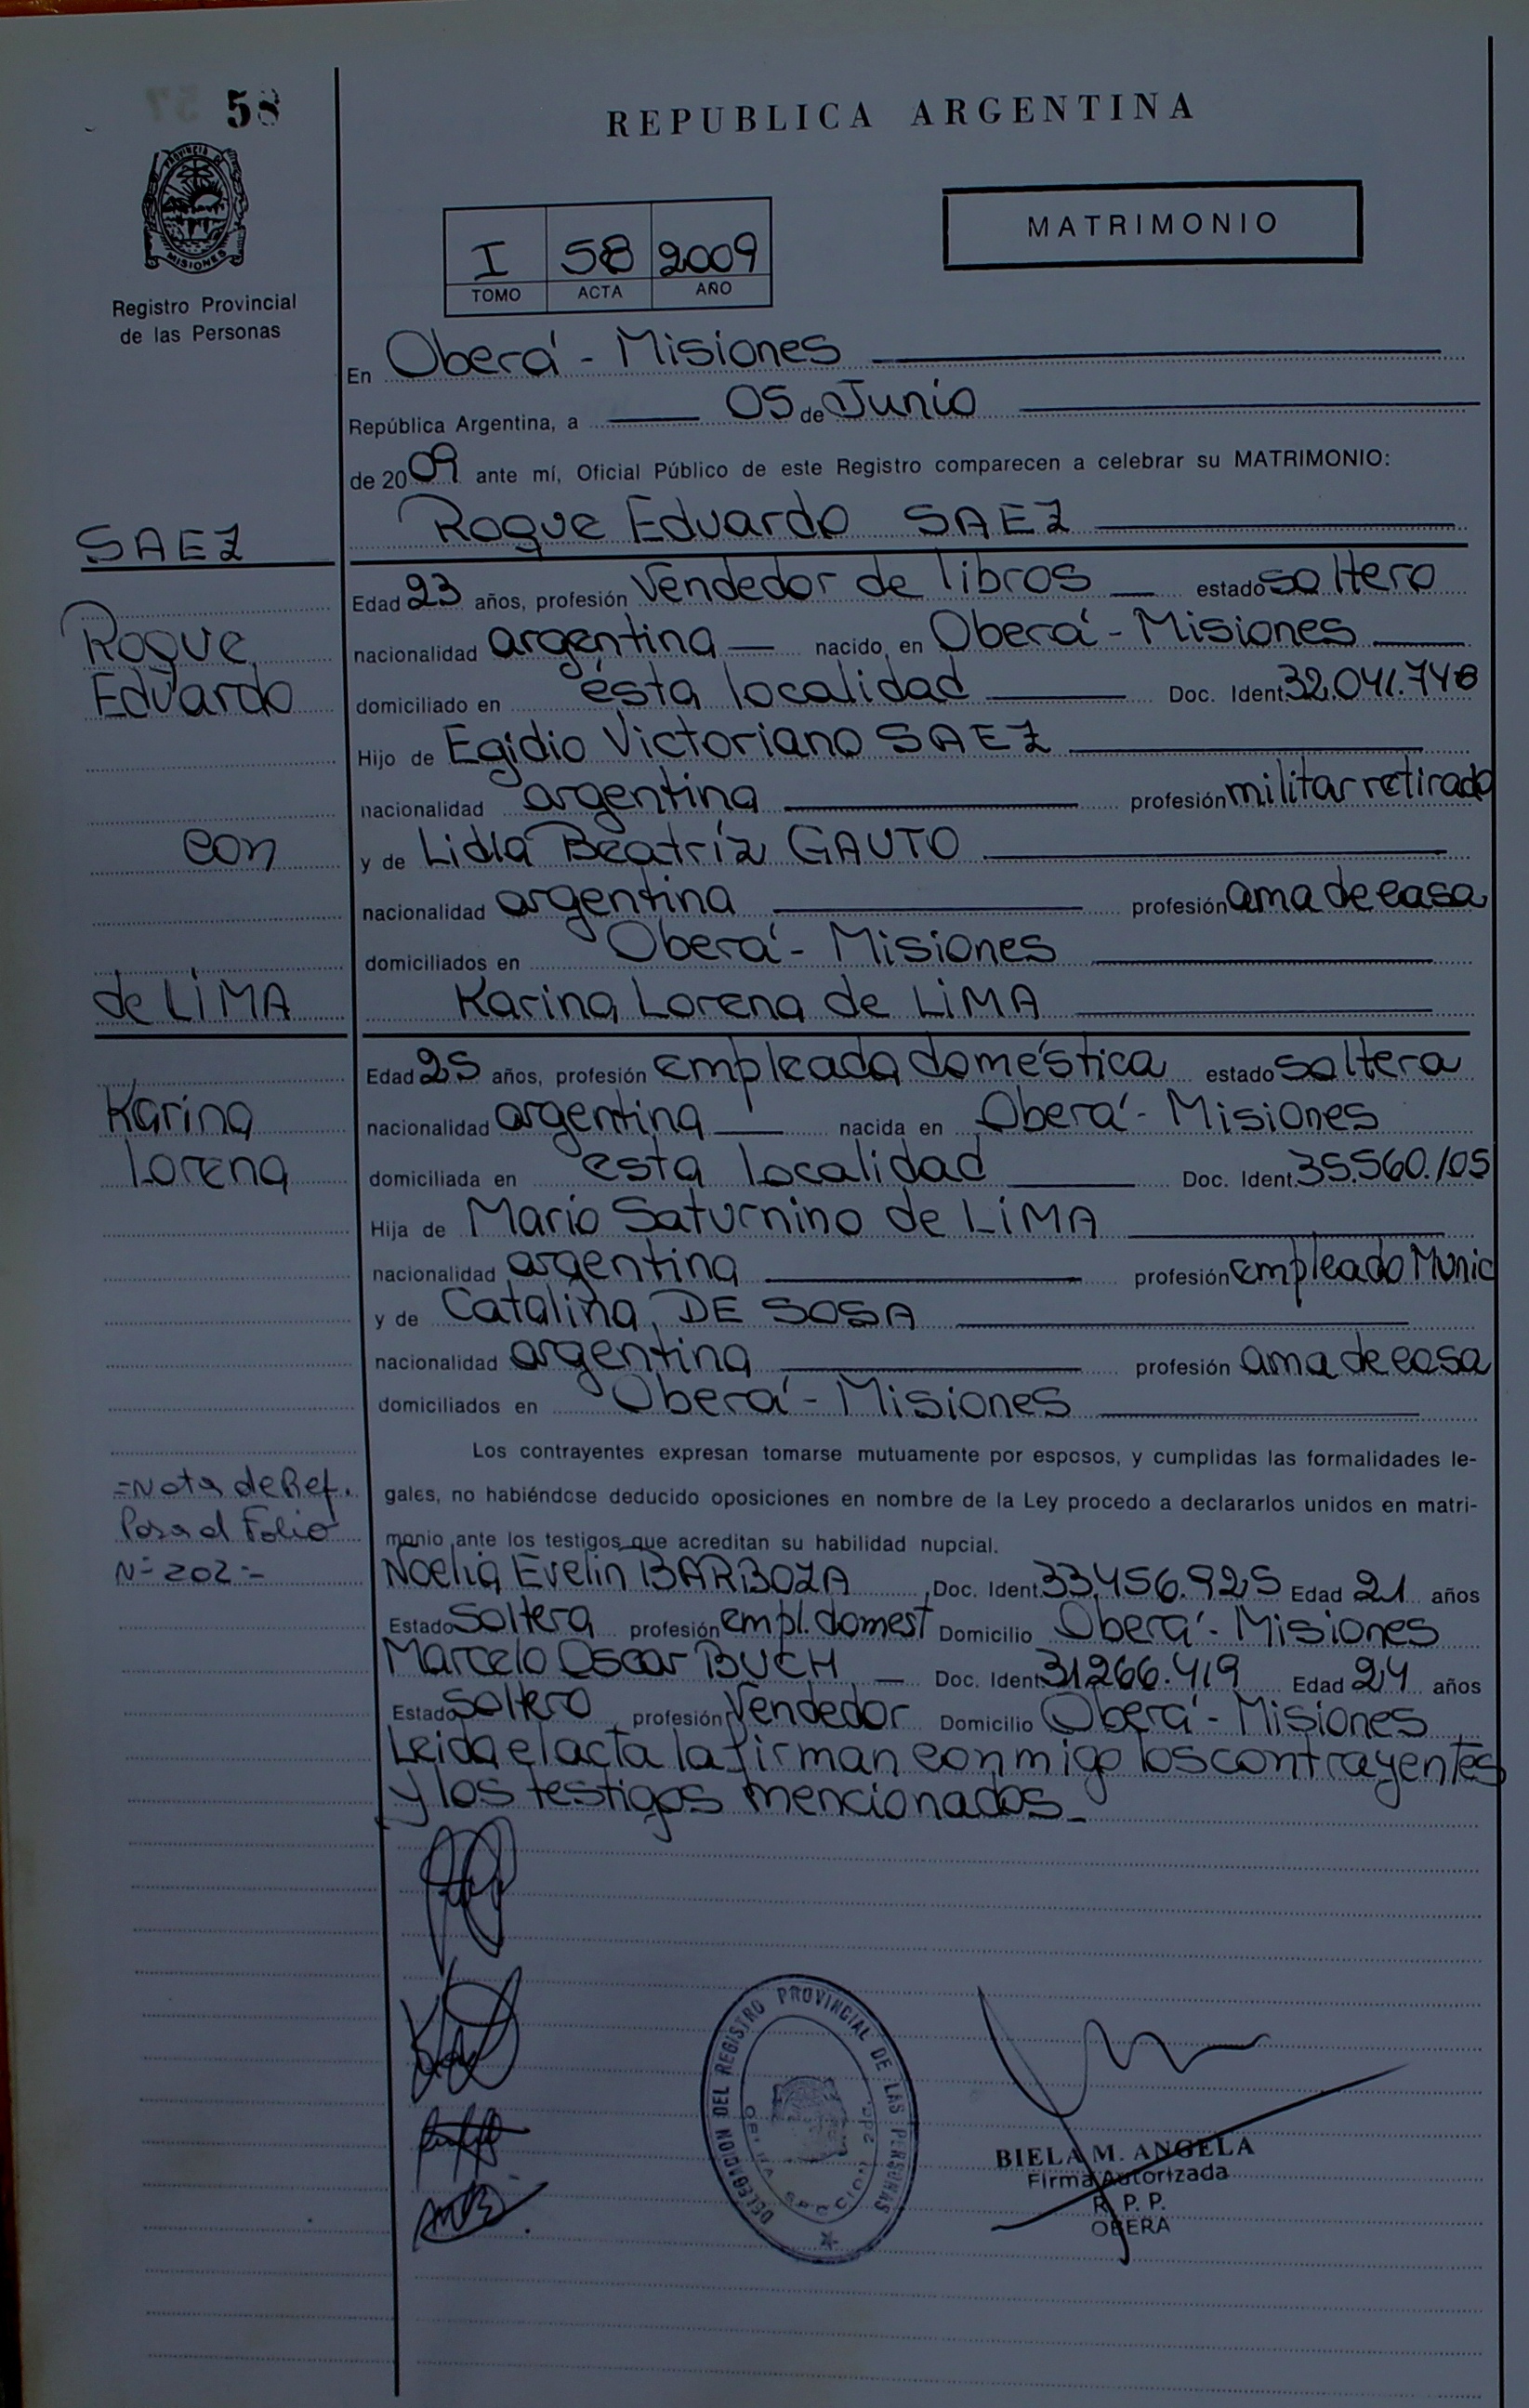 58
REPUBLICA ARGENTINA
PROVINCIA DE
MISIONES
Registro Provincial
de las Personas
I 58 2009
TOMO ACTA AÑO
MATRIMONIO
En Oberá - Misiones
República Argentina, a 05 de Junio
de 2009 ante mí, Oficial Público de este Registro comparecen a celebrar su MATRIMONIO:
SAEZ
Roque Eduardo SAEZ
Edad 23 años, profesión Vendedor de libros estado soltero
Roque
Eduardo
nacionalidad argentina nacido en Oberá - Misiones
domiciliado en ésta localidad Doc. Ident. 32.041.748
Hijo de Egidio Victoriano SAEZ
nacionalidad argentina profesión militar retirado
con
y de Lidia Beatríz GAUTO
nacionalidad argentina profesión ama de casa
domiciliados en Oberá - Misiones
de LiMA
Karina Lorena de LiMA
Edad 25 años, profesión empleada doméstica estado soltera
Karina
Lorena
nacionalidad argentina nacida en Oberá - Misiones
domiciliada en esta localidad Doc. Ident. 35.560.105
Hija de Mario Saturnino de LiMA
nacionalidad argentina profesión empleado Munic
y de Catalina DE SOSA
nacionalidad argentina profesión ama de casa
domiciliados en Oberá - Misiones
Los contrayentes expresan tomarse mutuamente por esposos, y cumplidas las formalidades le-
gales, no habiéndose deducido oposiciones en nombre de la Ley procedo a declararlos unidos en matri-
monio ante los testigos que acreditan su habilidad nupcial.
=Nota de Ref.
Pasa al Folio
Nº 202=
Noelia Evelin BARBOZA Doc. Ident. 33.456.925 Edad 21 años
Estado Soltera profesión empl. domest Domicilio Oberá - Misiones
Marcelo Oscar BUCH Doc. Ident. 31266.419 Edad 24 años
Estado Soltero profesión Vendedor Domicilio Oberá - Misiones
Leida el acta la firman conmigo los contrayentes
y los testigos mencionados
DELEGACION DEL REGISTRO PROVINCIAL DE LAS PERSONAS
BIELA M. ANGELA
Firma Autorizada
R. P. P.
OBERA